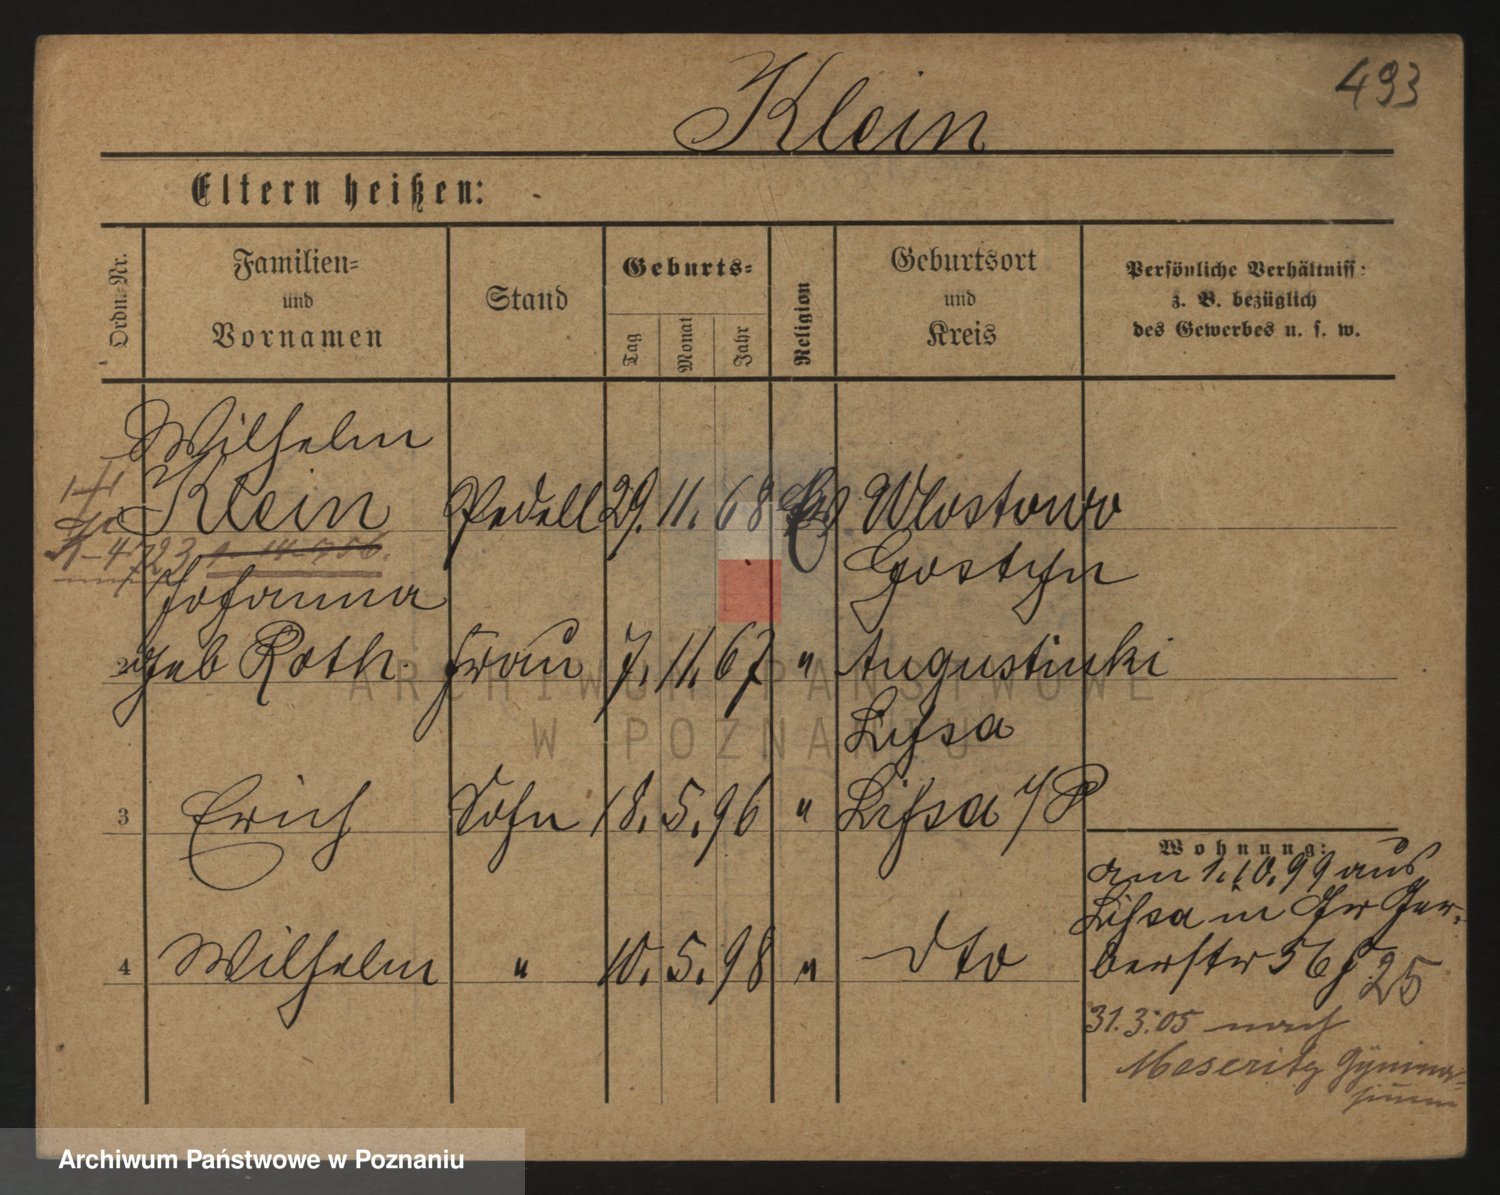 493
Klein
Eltern heißen:
Ordn.-Nr.
Familien-
und
Vornamen
Stand
Geburts-
Tag
Monat
Jahr
Religion
Geburtsort
und
Kreis
Persönliche Verhältniss:
z. B. bezüglich
des Gewerbes u. s. w.
Wilhelm
Klein Pedell 29. 11. 68 Ev Wlostowo
Gostyn
Johanna
2 geb Roth Frau 7. 11. 67 " Augustinki
Lissa
3 Erich Sohn 18. 5. 96 " Lissa i/P
4 Wilhelm " 10. 5. 98 " dto
Wohnung:
am 1.10.99 aus
Lissa in Gr Ger-
berstr 56
25
31.3.05 nach
Meseritz Gymna-
sium
ARCHIWUM PAŃSTWOWE
W POZNANIU
Archiwum Państwowe w Poznaniu